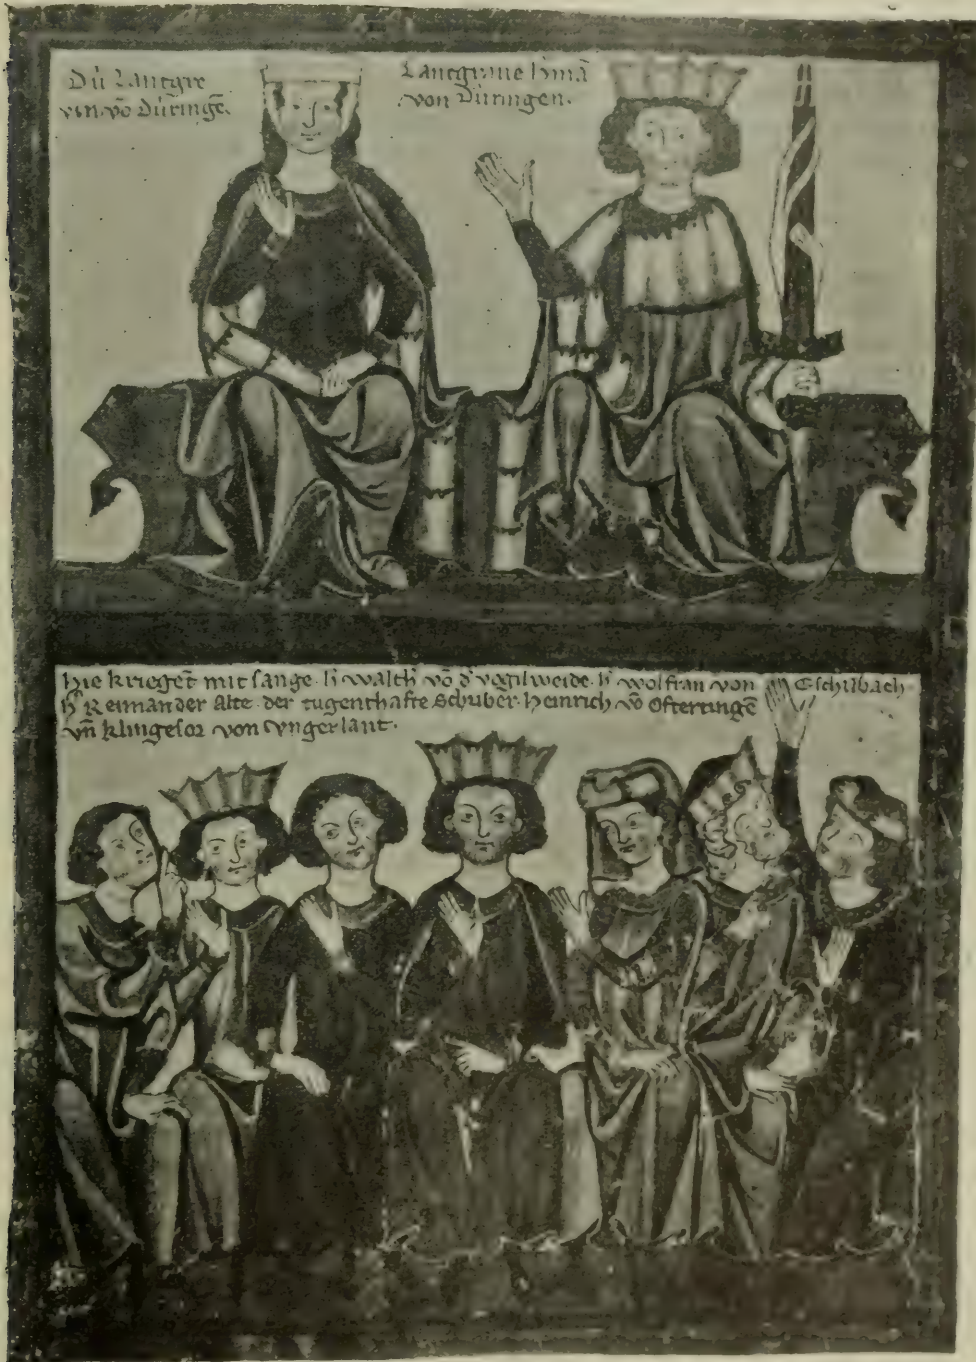 Dů Lantgre
vin vō Důringē.
Lantgraue h̄mā
von Důringen.
hie kriegēt mit sange. h̄ walth̄ vō d̄ vogilweide. h̄ wolfran von Eschilbach
h̄ Reiman der Alte. der tugenthafte Schriber. heinrich vō Ofterdingē
vn̄ klingesor von vngerlant.